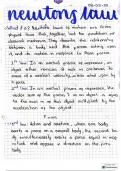 newtons laws
Newton's laws of motion are three
physical laws that, together, laid the foundation of
classical mechanics. They describe the relationship
between a body and the forces acting upon
it, and its motion in response to those forces.
1st law: In an inertial frame of reference, an
object either remains at rest or continues to
move at a constant velocity, unless acted upon by
a force.
2nd law: In an inertial frame of reference, the
vector sum of the forces F on an object is equal
to the mass m of that object multiplied by the
acceleration a of the object:
F = ma
3rd law:
exerts a force on a second body, the second bo-
dy simultaneously exerts a force equal in mag-
nitude and opposite in direction on the first
body.